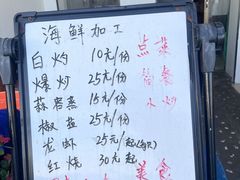 海鲜加工
白灼 10元/份
爆炒 25元/份
蒜蓉蒸 15元/份
椒盐 25元/份
龙虾 25元/起
红烧 30元起
点菜
小炒
美食